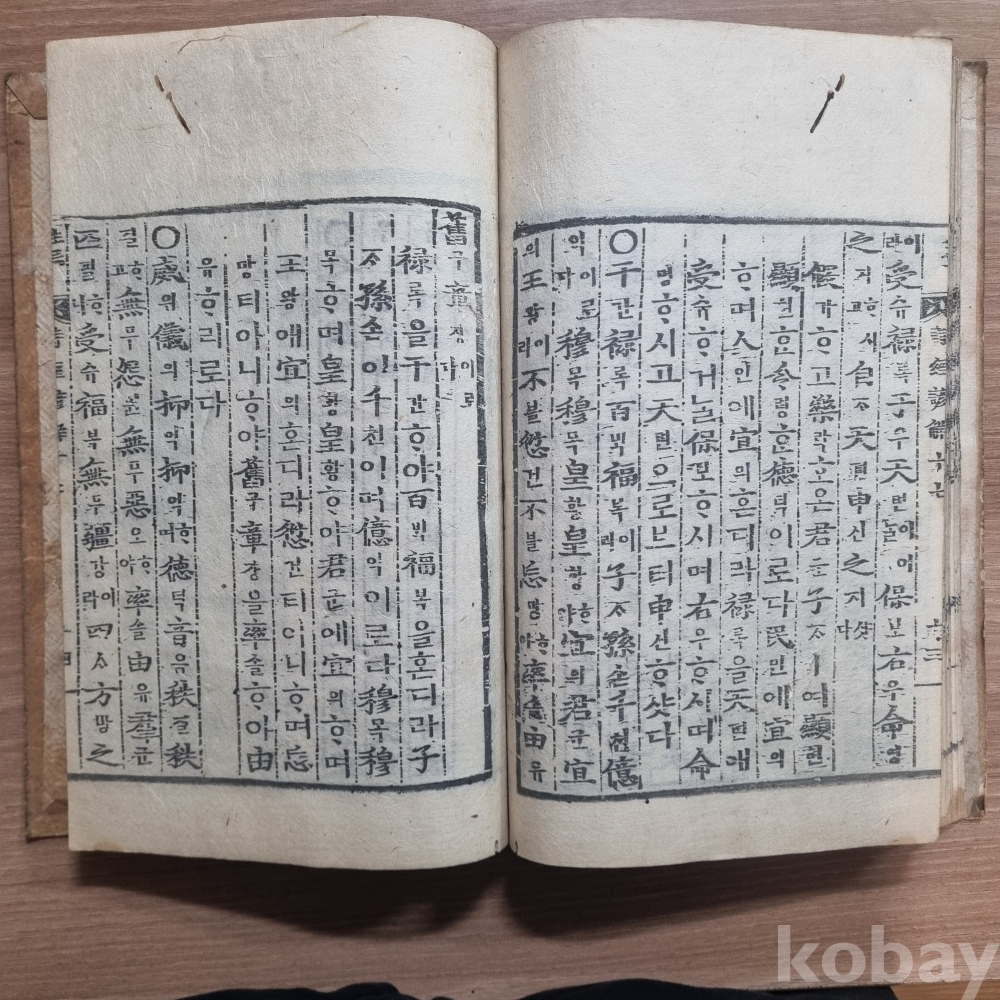 이라受슈祿록于우天텬이 保보右우命명
之지ᄒᆞ시고自ᄌᆞ天텬申신之지샷다
假가ᄒᆞ고樂락ᄒᆞ온君군子ᄌᆞㅣ여顯현
顯현ᄒᆞᆫ令령ᄒᆞᆫ德덕이로다民민에宜의
ᄒᆞ며人인에宜의ᄒᆞᆫ디라祿록을天텬애
受슈ᄒᆞ거ᄂᆞᆯ保보ᄒᆞ시며右우ᄒᆞ시며命
명ᄒᆞ시고天텬으로브티申신ᄒᆞ샷다
○干간祿록百ᄇᆡᆨ福복이라子ᄌᆞ孫손千쳔億
억이로다穆목穆목皇황皇황ᄒᆞ야宜의君군宜
의王왕이라不블愆건不블忘망ᄒᆞ야率솔由유
舊구章쟝이로다
祿록을干간ᄒᆞ야百ᄇᆡᆨ福복을혼디라子
ᄌᆞ孫손이千쳔이며億억이로다穆목穆
목ᄒᆞ며皇황皇황ᄒᆞ야君군에宜의ᄒᆞ며
王왕애宜의ᄒᆞᆫ디라愆건티아니ᄒᆞ며忘
망티아니ᄒᆞ야舊구章쟝을率솔ᄒᆞ야由
유ᄒᆞ리로다
○威위儀의抑억抑억ᄒᆞ며德덕音음秩딜秩
딜ᄒᆞ고無무怨원無무惡오ᄒᆞ야率솔由유羣군
匹필ᄒᆞ니受슈福복無무疆강이라四ᄉᆞ方방之
詩經諺解
kobay